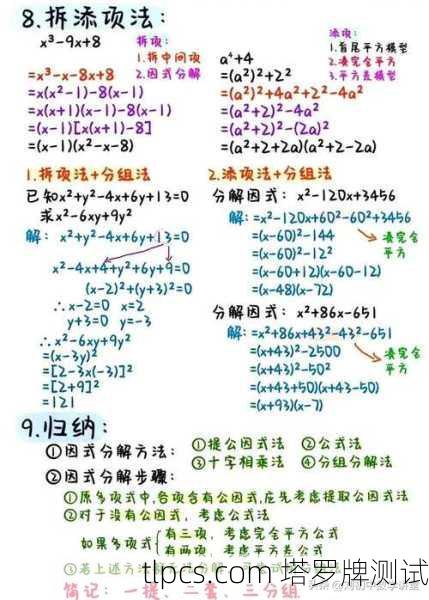 8.拆添项法:
x³-9x+8
拆项:
1.拆中间项
2.因式分解
=x³-x-8x+8
=x(x²-1)-8(x-1)
=x(x+1)(x-1)-8(x-1)
=(x-1)[x(x+1)-8]
=(x-1)(x²-x-8)
添项:
1.首尾平方模型
2.凑完全平方
3.平方差模型
a⁴+4
=(a²)²+2²
=(a²)²+4a²+2²-4a²
=(a²+2)²-4a²
=(a²+2)²-(2a)²
=(a²+2+2a)(a²+2-2a)
1.拆项法+分组法
已知x²+y²-4x+6y+13=0
求x²-6xy+9y²
解: x²+y²-4x+6y+13=0
x²-4x+4+y²+6y+9=0
(x-2)²+(y+3)²=0
∴x-2=0 x=2
y+3=0 y=-3
∴x²-6xy+9y²
=(x-3y)²
=[2-3x(-3)]²
=[2+9]²
=121
2.添项法+分组法
分解因式: x²-120x+3456
解:=x²-120x+60²-60²+3456
=(x-60)²-144
=(x-60)²-12²
凑完全平方
=(x-60+12)(x-60-12)
=(x-48)(x-72)
分解因式: x²+86x-651
解:=x²+86x+43²-43²-651
=(x+43)²-2500
=(x+43)²-50²
凑完全平方
=(x+43+50)(x+43-50)
=(x+93)(x-7)
9.归纳:
①因式分解方法: ①提公因式法 ②公式法
③十字相乘法 ④分组分解法
②因式分解步骤:
①原多项式中,各项含有公因式,应先考虑提取公因式法
②对于没有公因式,考虑公式法
如果多项式{有三项,考虑完全平方公式
有两项,考虑平方差公式
③若上述方法
简记: 一提、二套、三分组
tlpcs.com 塔罗牌测试